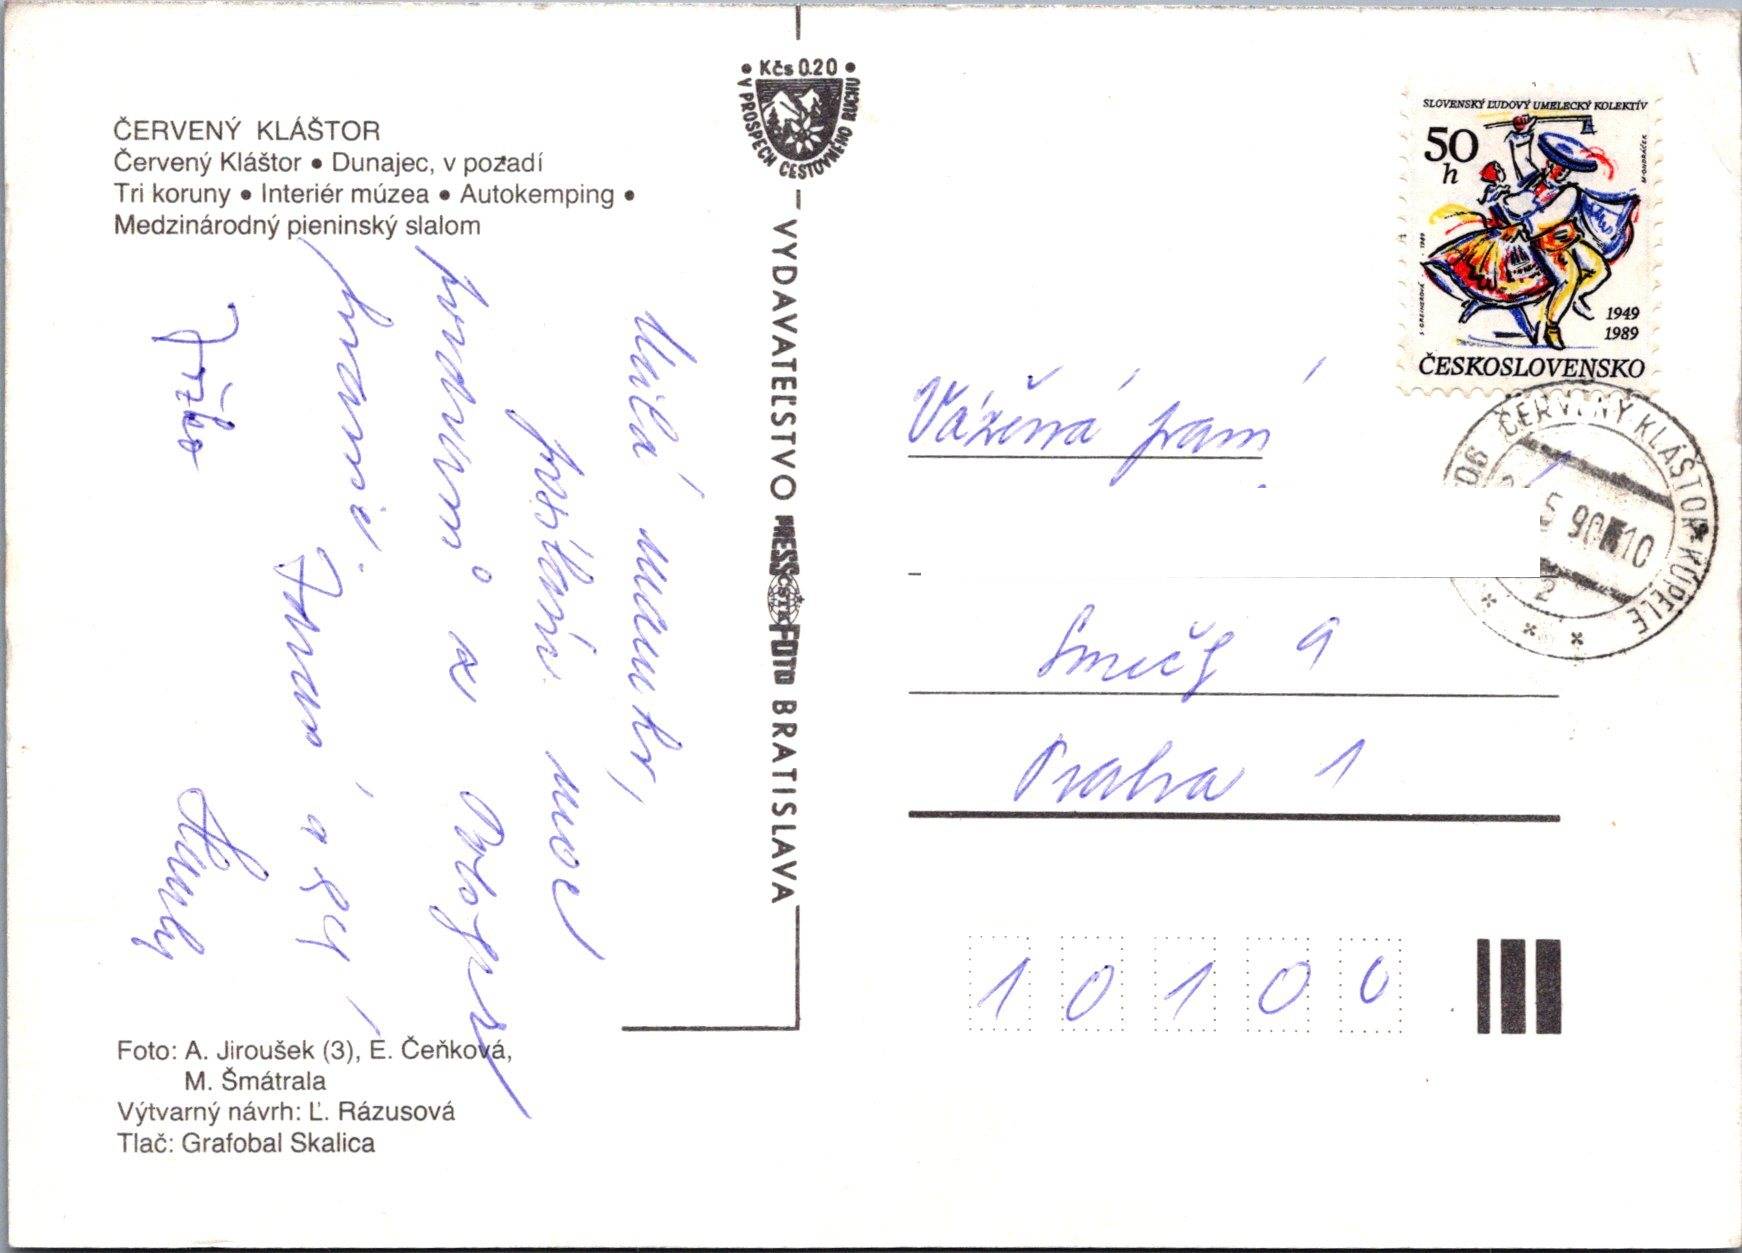 ČERVENÝ KLÁŠTOR
Červený Kláštor • Dunajec, v pozadí
Tri koruny • Interiér múzea • Autokemping •
Medzinárodný pieninský slalom
Milá maminko,
posílám moc
pozdravů z
Jirka
Foto: A. Jiroušek (3), E. Čeňková,
M. Šmátrala
Výtvarný návrh: Ľ. Rázusová
Tlač: Grafobal Skalica
• Kčs 0.20 •
V PROSPECH CESTOVNÉHO RUCHU
VYDAVATEĽSTVO PRESSFOTO BRATISLAVA
ČSTK
SLOVENSKÝ ĽUDOVÝ UMELECKÝ KOLEKTÍV
50
h
M. ONDRÁČEK
1949
1989
ČESKOSLOVENSKO
06 ČERVENÝ KLÁŠTOR-KÚPELE
5 90 10
2
Vážená paní
Smečky 9
Praha 1
1 0 1 0 0